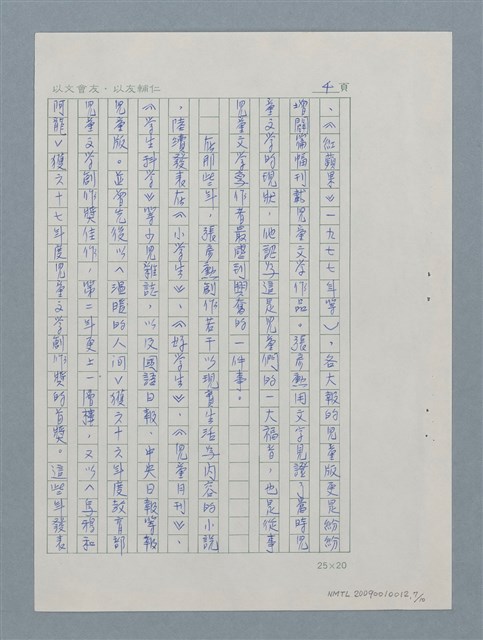 以文會友・以友輔仁
4頁
、《紅蘋果》一九七七年等），各大報的兒童版更是紛紛
增闢篇幅刊載兒童文學作品。張彥勳用文字見證了當時兒
童文學的現狀，他認為這是兒童們的一大福音，也是從事
兒童文學寫作者最感到興奮的一件事。
在那些年，張彥勳創作若干以現實生活為內容的小說
，陸續發表在《小學生》、《好學生》、《兒童月刊》、
《學生科學》等少兒雜誌，以及國語日報、中央日報等報
兒童版。並曾先後以〈溫暖的人間〉獲六十六年度教育部
兒童文學創作獎佳作，第二年更上一層樓，又以〈烏鴉和
阿龍〉獲六十七年度兒童文學創作獎的首獎。這些年發表
25×20
NMTL 20090010012, 7/10